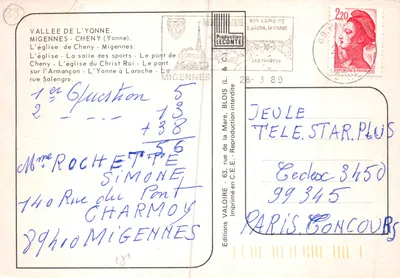 VALLEE DE L'YONNE.
MIGENNES - CHENY (Yonne).
L'église de Cheny - Migennes:
L'église - La salle des sports - Le pont de
Cheny - L'église du Christ Roi - Le pont
sur l'Armançon - L'Yonne à Laroche - La
rue Salengro.
1er Question 5
2 - ... - 13
+38
56
Mme ROCHETTE
SIMONE
140 Rue du Pont
CHARMOY
89410 MIGENNES
Production
LECONTE
MIGENNES
son camping
sa pêche, le canal
ses rivières
26-3 89
2,20
Editions VALOIRE - 63, rue de la Mare, BLOIS (L. & C.)
Imprimé en C.E.E. - Reproduction interdite
JEULE
TELE.STAR.PLUS
Cedex 3450
99345
PARIS.CONCOURS